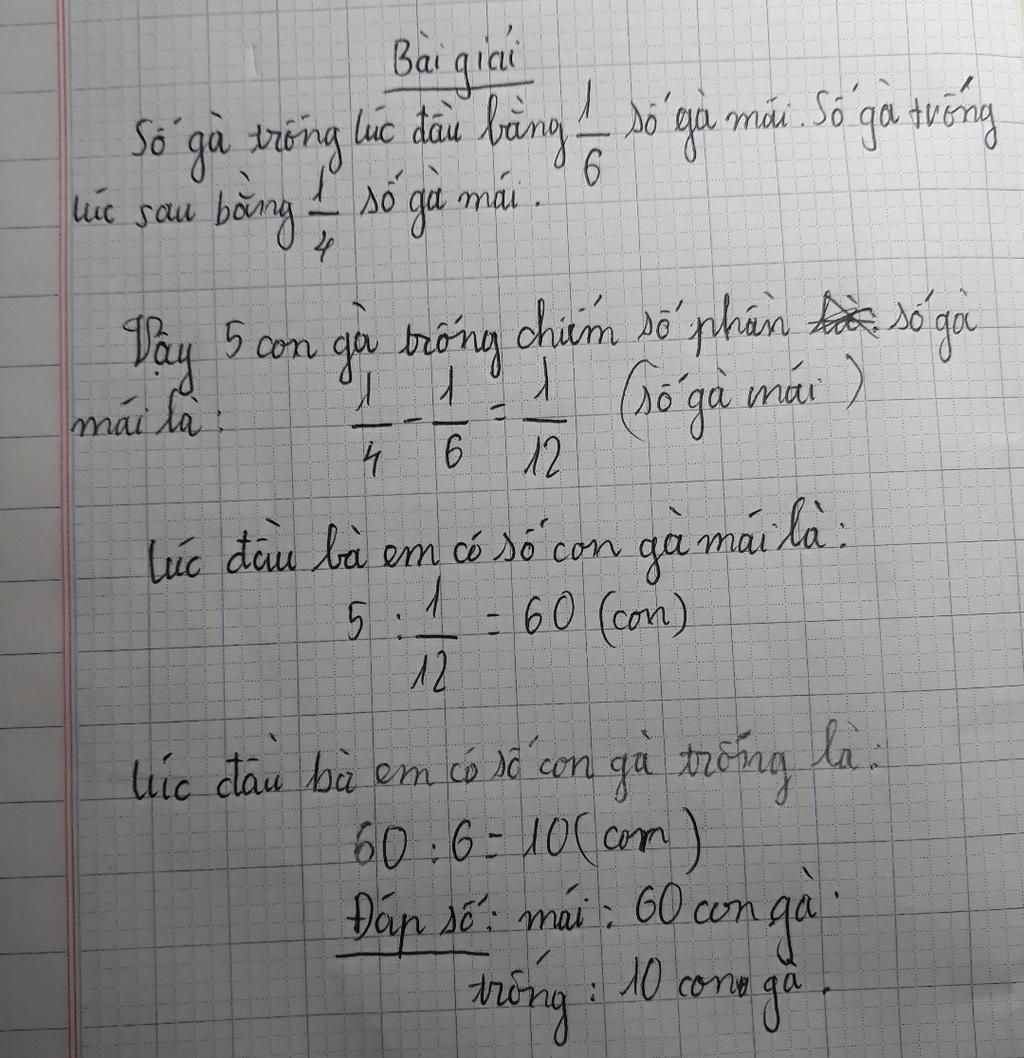 Bài giải
Số gà trống lúc đầu bằng 1/6 số gà mái. Số gà trống
lúc sau bằng 1/4 số gà mái.
Vậy 5 con gà trống chiếm số phần số gà
mái là: 1/4 - 1/6 = 1/12 (số gà mái)
Lúc đầu bà em có số con gà mái là:
5 : 1/12 = 60 (con)
Lúc đầu bà em có số con gà trống là:
60 : 6 = 10 (con)
Đáp số: mái: 60 con gà.
trống: 10 con gà.